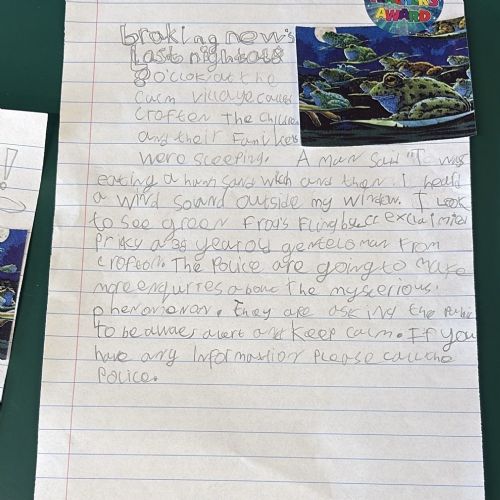 AWARD
braking new's
Last night at
8 o'clok at the
calm village called
Crofton The Children
and their Families
were sleeping. A man said "I was
eating a ham sandwich and then I heard
a wird sound outside my window. I look
to see green frogs Fling by" exclaimed
a 39 year old genteloman from
Crofton. The Police are going to make
more enquires about The mysterious
phenomenon. They are asking the Public
To be alert and Keep calm. If you
have any Information Please call the
Police.